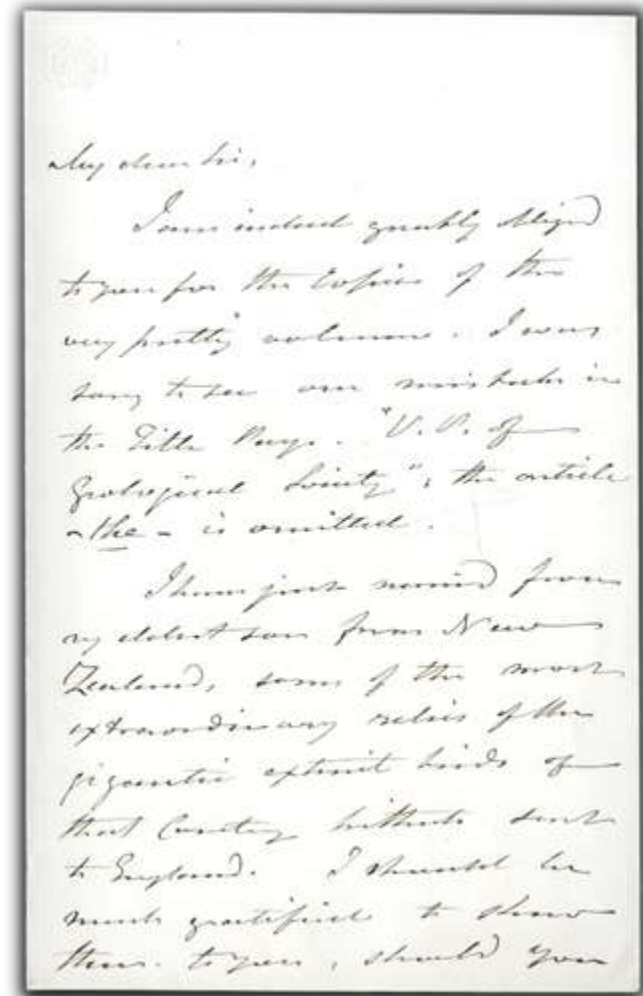 My dear Sir,
I am indeed greatly obliged
to you for the Copies of the
very pretty volumes. I was
sorry to see one mistake in
the Title Page. "V.P. of
Geological Society", the article
- the - is omitted.
I have just received from
my eldest son from New
Zealand, some of the most
extraordinary relics of the
gigantic extinct birds of
that Country hitherto sent
to England. I should be
much gratified to show
them to you, should you